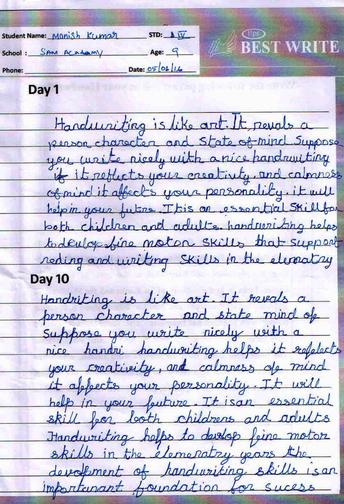 Student Name: Manish Kumar STD: IV
School: SAM Academy Age: 9
Phone: Date: 05/06/16
Tips BEST WRITE
Day 1
Handwriting is like art. It, revals a
person character and state of mind Suppose
you write nicely with a nice handwriting
if it reflects your creativity, and calmness
of mind it affects your personality. it will
help in your future. It is an essential Skill for
both children and adults. handwriting helps
to develop fine motor skills that Support
reding and writing skills in the elematry
Day 10
Handriting is like art. It reveals a
person character and state mind of
Suppose you write nicely with a
nice handri handwriting helps it refelects
your creativity, and calmness of mind
it affects your personality. It will
help in your fueture. It is an essential
skill for both childrens and adults
Handwriting helps to devlop fine motor
skills in the elemenatry years the
devolement of handwriting skills is an
importanant foundation for sucess